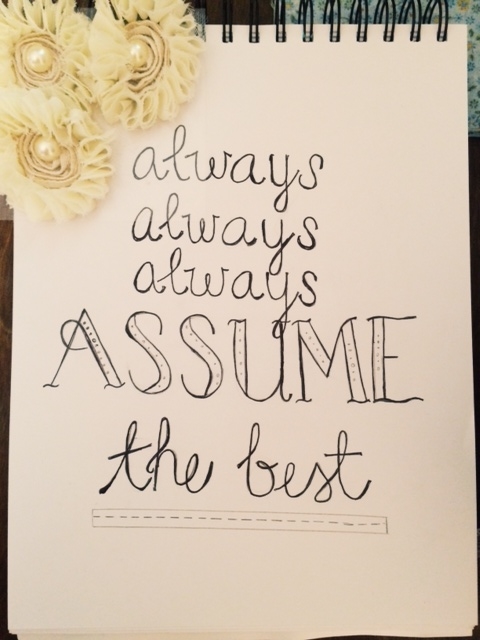 always
always
always
ASSUME
the best